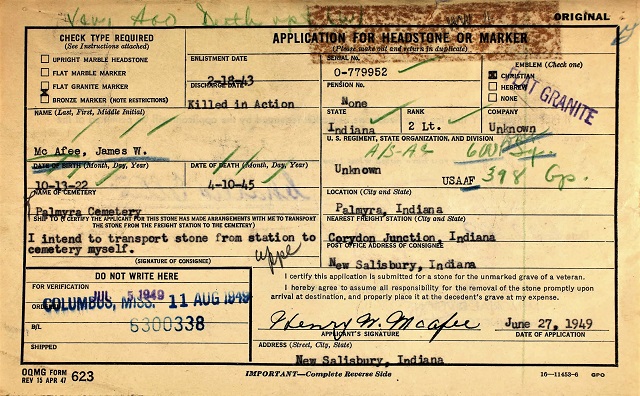 ORIGINAL
CHECK TYPE REQUIRED
(See Instructions attached)
UPRIGHT MARBLE HEADSTONE
FLAT MARBLE MARKER
FLAT GRANITE MARKER
BRONZE MARKER (NOTE RESTRICTIONS)
ENLISTMENT DATE
2-18-43
DISCHARGE DATE
Killed in Action
APPLICATION FOR HEADSTONE OR MARKER
(Please make out and return in duplicate)
SERIAL NO.
O-779952
PENSION NO.
None
EMBLEM (Check one)
CHRISTIAN
HEBREW
NONE
FLAT GRANITE
NAME (Last, First, Middle Initial)
Mc Afee, James W.
STATE
Indiana
RANK
2 Lt.
COMPANY
Unknown
U. S. REGIMENT, STATE ORGANIZATION, AND DIVISION
Unknown
600
USAAF 398 Gp.
DATE OF BIRTH (Month, Day, Year)
10-13-22
DATE OF DEATH (Month, Day, Year)
4-10-45
NAME OF CEMETERY
Palmyra Cemetery
LOCATION (City and State)
Palmyra, Indiana
SHIP TO (I CERTIFY THE APPLICANT FOR THIS STONE HAS MADE ARRANGEMENTS WITH ME TO TRANSPORT THE STONE FROM THE FREIGHT STATION TO THE CEMETERY)
I intend to transport stone from station to
cemetery myself.
(SIGNATURE OF CONSIGNEE)
NEAREST FREIGHT STATION (City and State)
Corydon Junction, Indiana
POST OFFICE ADDRESS OF CONSIGNEE
New Salisbury, Indiana
DO NOT WRITE HERE
FOR VERIFICATION
JUL 5 1949
COLUMBUS, MISS. 11 AUG 1949
B/L
6300338
SHIPPED
I certify this application is submitted for a stone for the unmarked grave of a veteran.
I hereby agree to assume all responsibility for the removal of the stone promptly upon
arrival at destination, and properly place it at the decedent's grave at my expense.
Henry W. McAfee
June 27, 1949
APPLICANT'S SIGNATURE
DATE OF APPLICATION
ADDRESS (Street, City, State)
New Salisbury, Indiana
OQMG FORM
REV 15 APR 47 623
IMPORTANT—Complete Reverse Side
16—11453-6 GPO